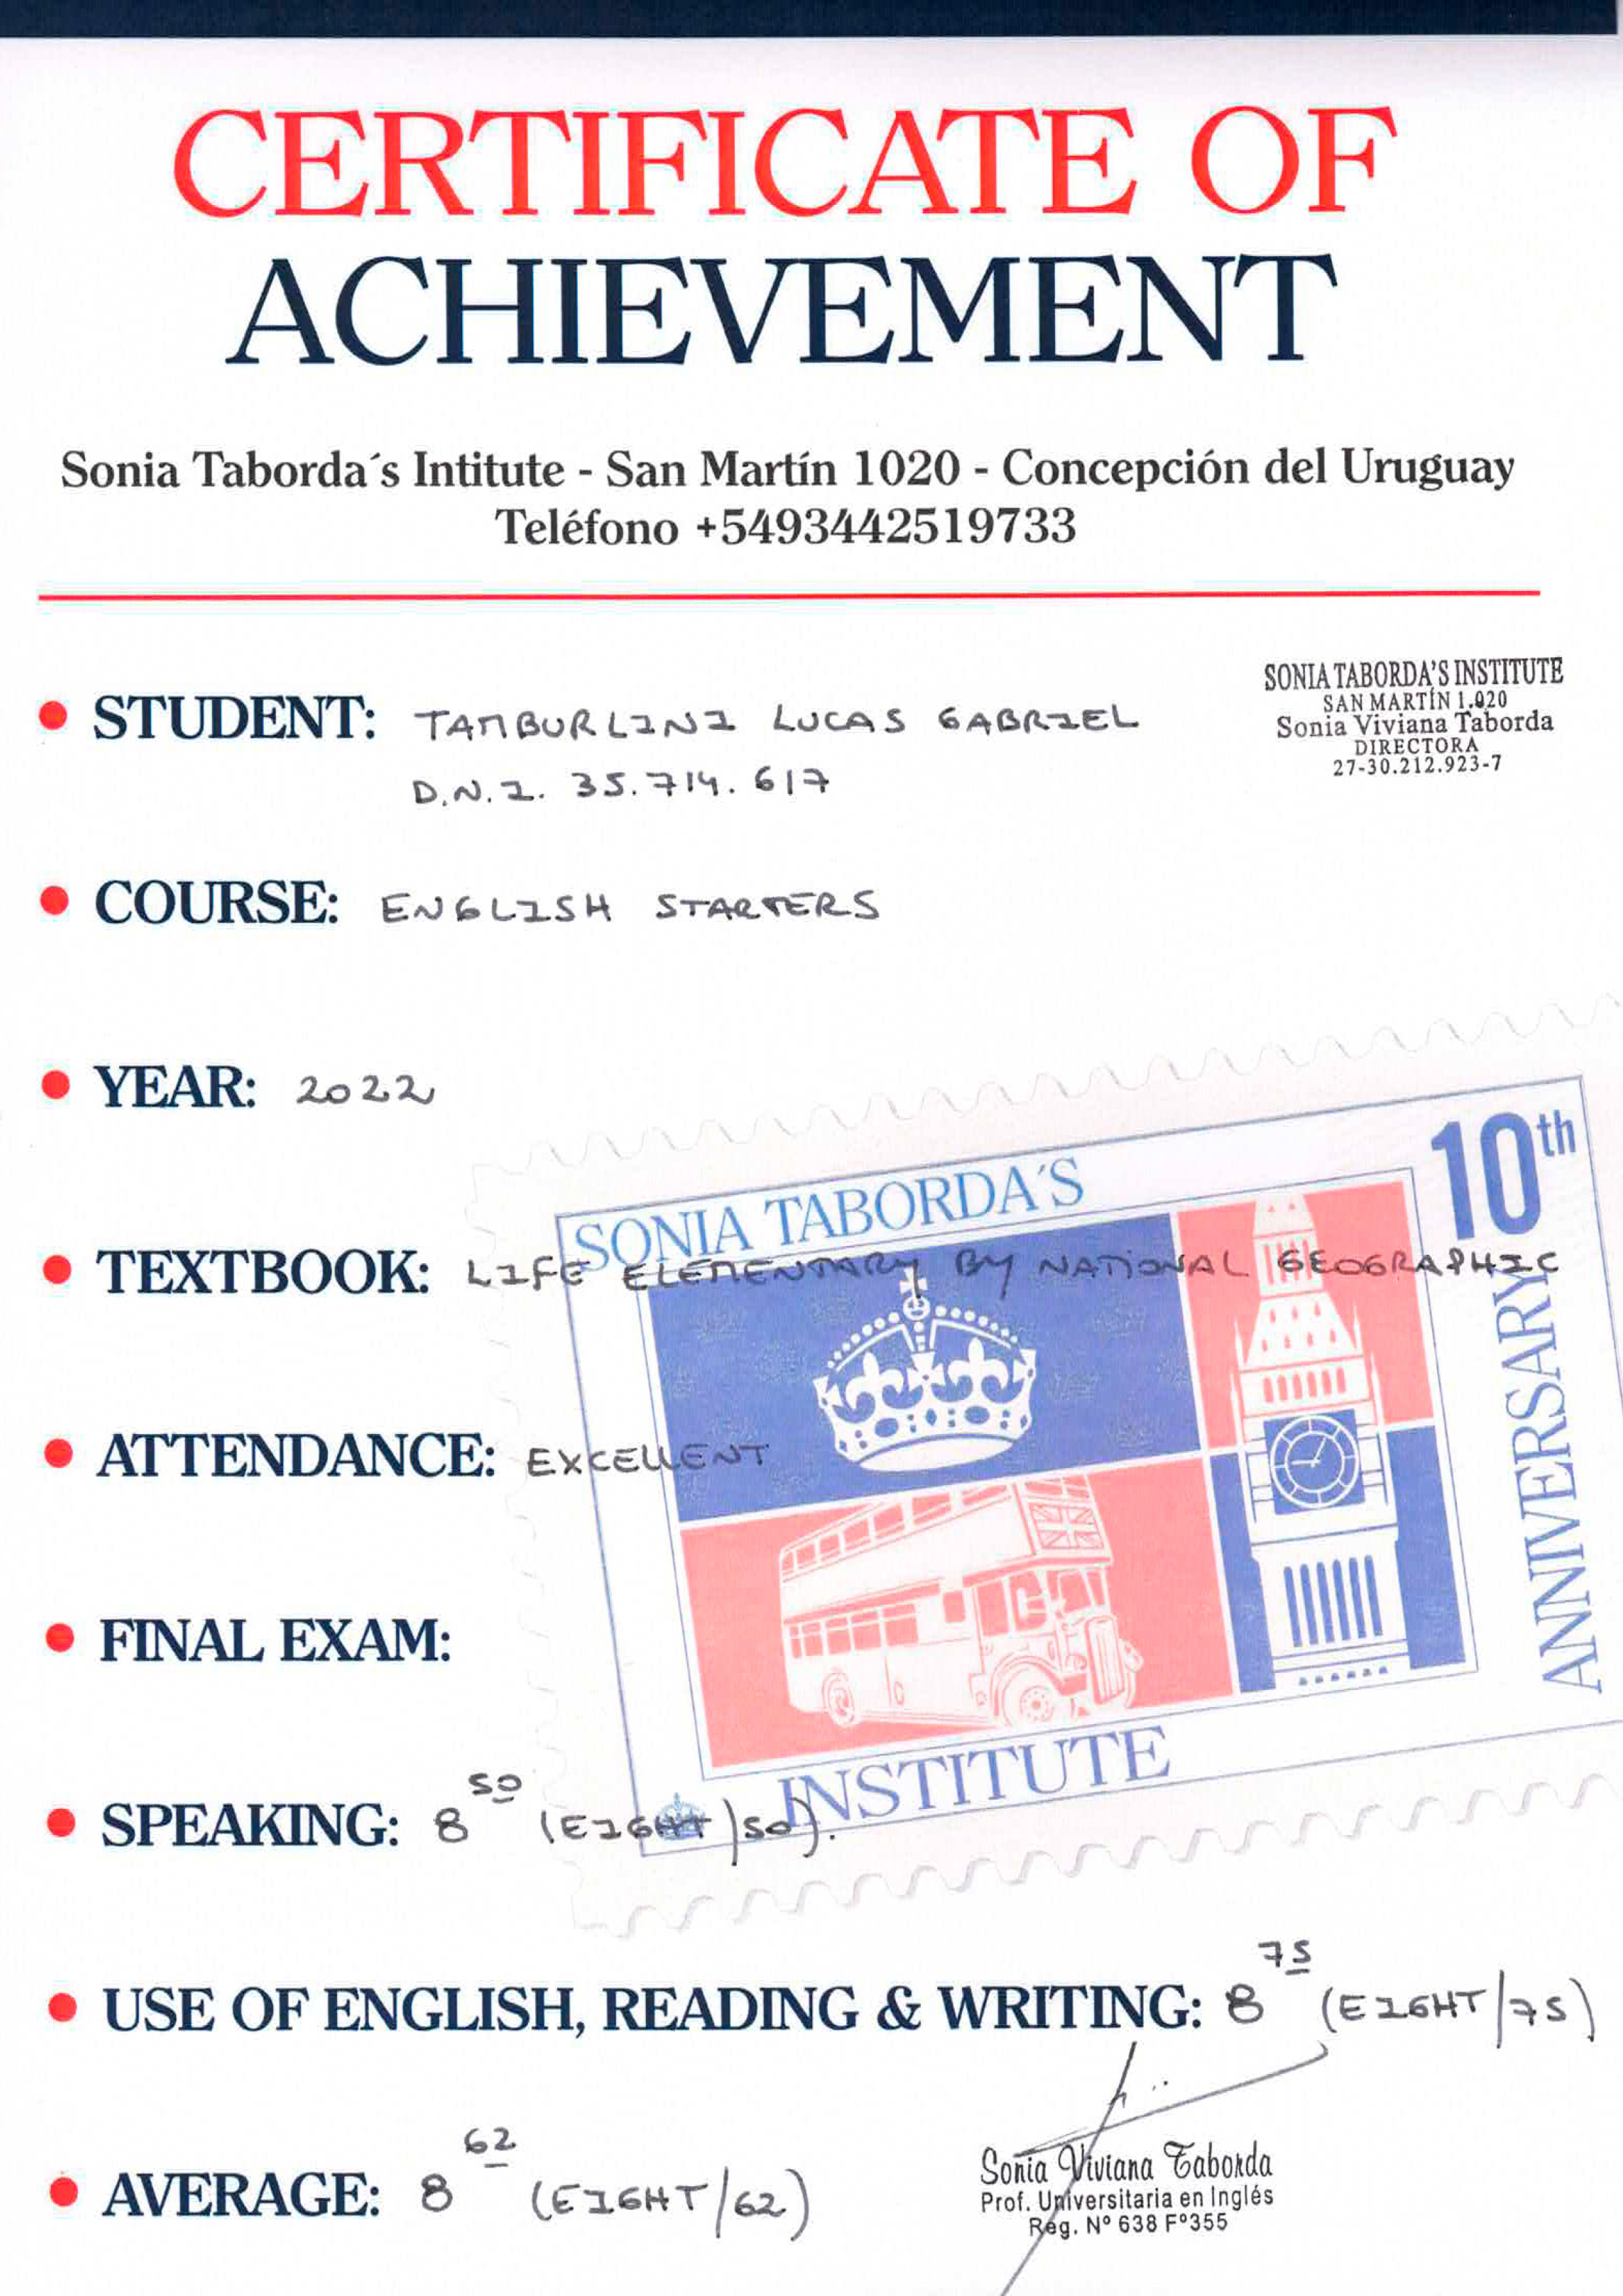 CERTIFICATE OF
ACHIEVEMENT
Sonia Taborda´s Intitute - San Martín 1020 - Concepción del Uruguay
Teléfono +5493442519733
SONIA TABORDA'S INSTITUTE
SAN MARTÍN 1.020
Sonia Viviana Taborda
DIRECTORA
27-30.212.923-7
• STUDENT: TAMBURLINI LUCAS GABRIEL
D.N.I. 35.714.617
• COURSE: ENGLISH STARTERS
• YEAR: 2022
SONIA TABORDA'S
10th
ANNIVERSARY
INSTITUTE
• TEXTBOOK: LIFE ELEMENTARY BY NATIONAL GEOGRAPHIC
• ATTENDANCE: EXCELLENT
• FINAL EXAM:
• SPEAKING: 8 50 (EIGHT/50).
• USE OF ENGLISH, READING & WRITING: 8 75 (EIGHT/75)
• AVERAGE: 8 62 (EIGHT/62)
Sonia Viviana Taborda
Prof. Universitaria en Inglés
Reg. Nº 638 Fº355